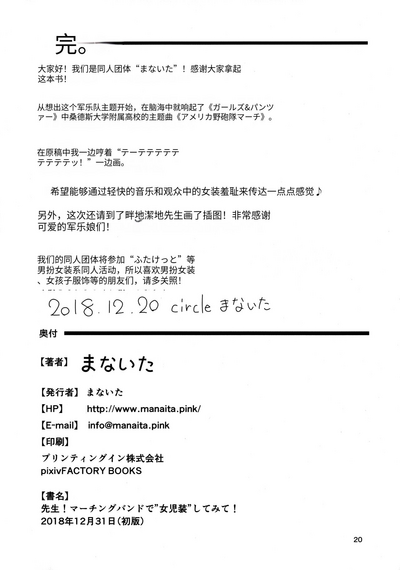 完。
大家好！我们是同人团体“まないた”！感谢大家拿起
这本书！
从想出这个军乐队主题开始，在脑海中就响起了《ガールズ&パンツ
ァー》中桑德斯大学附属高校的主题曲《アメリカ野砲隊マーチ》。
在原稿中我一边哼着“テーテテテテテ
テテテテッ！”一边画。
希望能够通过轻快的音乐和观众中的女装羞耻来传达一点点感觉♪
另外，这次还请到了畔地潔地先生画了插图！非常感谢
可爱的军乐娘们！
我们的同人团体将参加“ふたけっと”等
男扮女装系同人活动，所以喜欢男扮女装
、女孩子服饰等的朋友们，请多关照！
2018.12.20 circle まないた
奥付
【著者】 まないた
【発行者】 まないた
【HP】 http://www.manaita.pink/
【E-mail】 info@manaita.pink
【印刷】
プリンティングイン株式会社
pixivFACTORY BOOKS
【書名】
先生！マーチングバンドで”女児装”してみて！
2018年12月31日（初版）
20